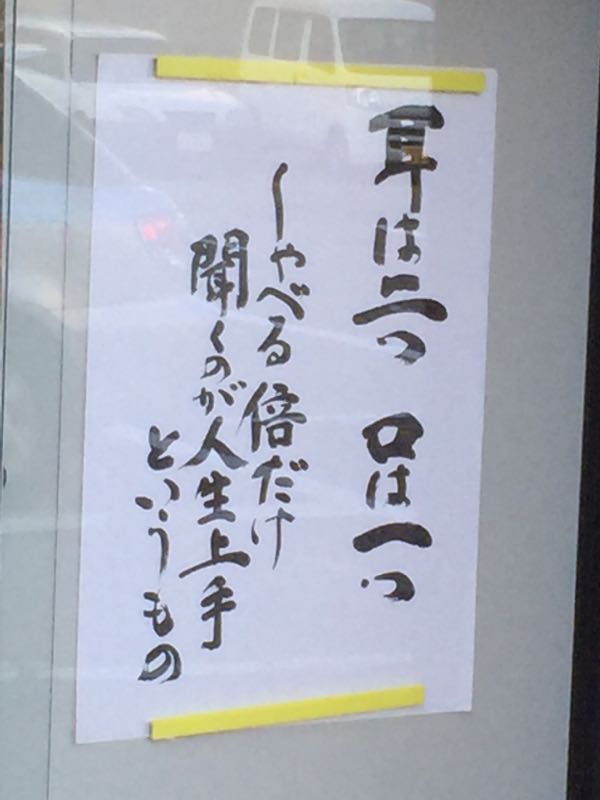 耳は二つ 口は一つ
しゃべる倍だけ
聞くのが人生上手
というもの